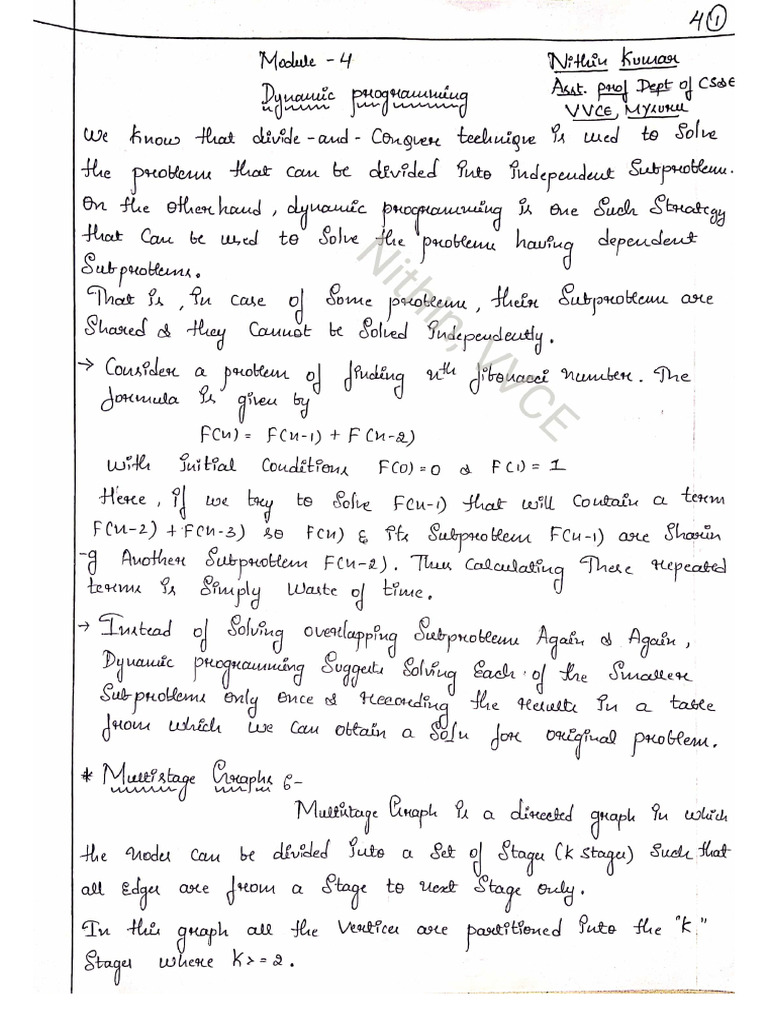 4 ①
Module - 4
Nithin Kumar
Dynamic programming
Asst. prof Dept of CS&E
VVCE, Mysuru
We know that divide-and-Conquer technique is used to Solve
the problem that can be divided into independent Subproblem.
On the otherhand, dynamic programming is one Such Strategy
that Can be used to Solve the problem having dependent
Subproblems.
That is, in case of Some problem, their Subproblem are
Shared & they Cannot be Solved independently.
→ Consider a problem of finding nth fibonacci number. The
formula is given by
F(n) = F(n-1) + F(n-2)
with initial Conditions F(0)=0 & F(1)=1
Here, if we try to Solve F(n-1) that will contain a term
F(n-2) + F(n-3) so F(n) & its Subproblem F(n-1) are Sharin
-g Another Subproblem F(n-2). Thus Calculating These repeated
terms is Simply Waste of time.
→ Instead of Solving overlapping Subproblem Again & Again,
Dynamic programming Suggests Solving Each of the Smaller
Subproblems only once & recording the results in a table
from which we can obtain a Soln for original problem.
* Multistage Graphs :-
Multistage Graph is a directed graph in which
the nodes can be divided into a Set of Stages (K stages) Such that
all Edges are from a Stage to next Stage only.
In this graph all the vertices are partitioned into the "K"
Stages where K>=2.
Nithin, VVCE